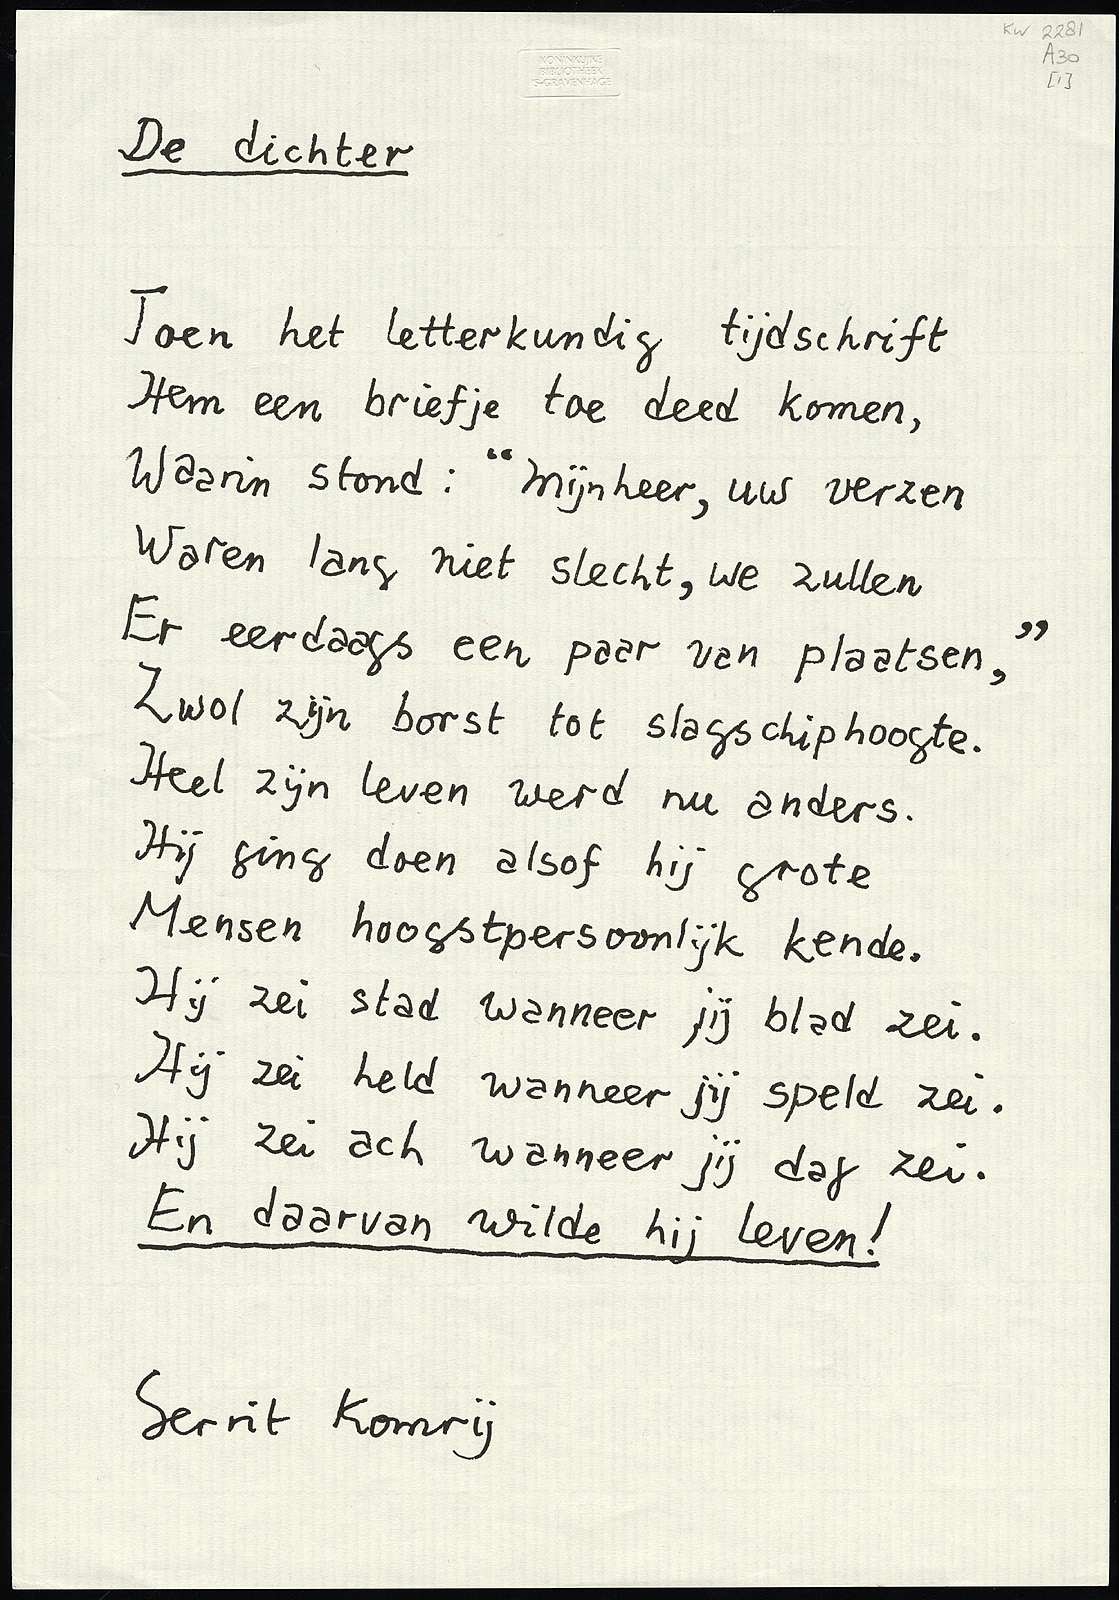 KW 2281
A30
[1]
KONINKLIJKE
BIBLIOTHEEK
'S-GRAVENHAGE
De dichter
Toen het letterkundig tijdschrift
Hem een briefje toe deed komen,
Waarin stond: “Mijnheer, uw verzen
Waren lang niet slecht, we zullen
Er eerdaags een paar van plaatsen,”
Zwol zijn borst tot slagschiphoogte.
Heel zijn leven werd nu anders.
Hij ging doen alsof hij grote
Mensen hoogstpersoonlijk kende.
Hij zei stad wanneer jij blad zei.
Hij zei held wanneer jij speld zei.
Hij zei ach wanneer jij dag zei.
En daarvan wilde hij leven!
Gerrit Komrij